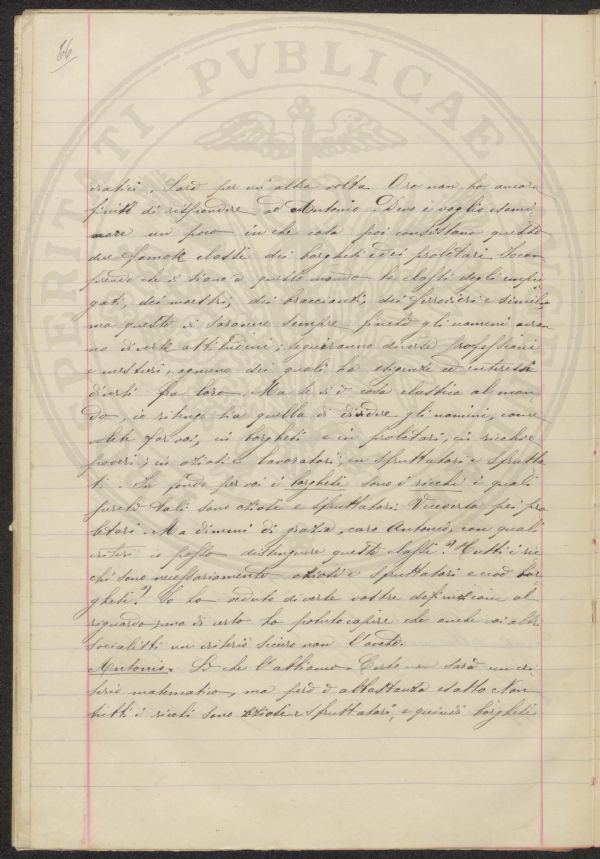 66
PERITATI PVBLICAE
cratici. Sarà per un'altra volta. Ora non ho ancora
finito di rispondere ad Antonio. Devo e voglio esami-
nare un poco in che cosa poi consistano queste
due famose classi dei borghesi e dei proletari. Io com-
prendo che vi siano a questo mondo le classi degli impie-
gati, dei maestri, dei braccianti, dei ferrovieri e simili,
ma queste vi saranno sempre finchè gli uomini avran-
no diverse attitudini; seguiranno diverse professioni
e mestieri, ognuno dei quali ha esigenze ed interessi
diversi fra loro. Ma se vi è cosa elastica al mon-
do, io ritengo sia quella di dividere gli uomini, come
fate voi, in borghesi e in proletari, in ricchi e
poveri, in oziosi e lavoratori, in sfruttatori e sfrutta-
ti. In fondo per voi i borghesi sono i ricchi i quali
perciò tali sono oziosi e sfruttatori. Viceversa pei pro-
letari. Ma dimmi di grazia, caro Antonio, con quali
criteri io posso distinguere queste classi? Tutti i ric-
chi sono necessariamente oziosi e sfruttatori e cioè bor-
ghesi? Io ho vedute diverse vostre definizioni al
riguardo, ma di certo ho potuto capire che anche voi altri
socialisti un criterio sicuro non l'avete.
Antonio. Sì che l'abbiamo. Certo non sarà un cri-
terio matematico, ma però è abbastanza esatto. Non
tutti i ricchi sono oziosi e sfruttatori, e quindi borghesi